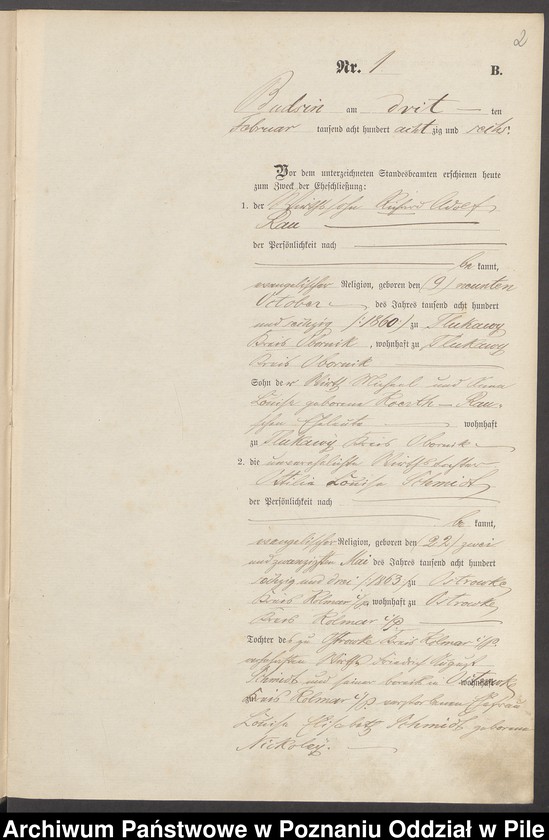 2
Nr. 1 B.
Budsin am drit ten
Februar tausend acht hundert achtzig und sechs.
Vor dem unterzeichneten Standesbeamten erschienen heute
zum Zweck der Eheschließung:
1. der Wirthssohn Adolf
Rau
der Persönlichkeit nach
be kannt,
evangelischer Religion, geboren den (9) neunten
October des Jahres tausend acht hundert
und sechzig /:1860:/ zu Tlukawy
Kreis Obornik, wohnhaft zu Tlukawy
Kreis Obornik
Sohn der Wirth Michael und Anna
Louise geborene Rau
schen Eheleute wohnhaft
zu Tlukawy Kreis Obornik
2. die unverehelichte Wirthstochter
Ottilie Louise Schmidt
der Persönlichkeit nach
be kannt,
evangelischer Religion, geboren den (22) zwei
und zwanzigsten Mai des Jahres tausend acht hundert
sechzig und drei /1863/ zu Ostrowke
Kreis Kolmar i/p wohnhaft zu Ostrowke
Kreis Kolmar i/p
Tochter des zu Ostrowke Kreis Kolmar i/p.
wohnhaften Wirths Friedrich August
Schmidt und seiner bereits in Ostrowke wohnhaft
zu Kreis Kolmar i/p. verstorbenen Ehefrau
Louise Elisabeth Schmidt, geborene
Nickolay.
Archiwum Państwowe w Poznaniu Oddział w Pile